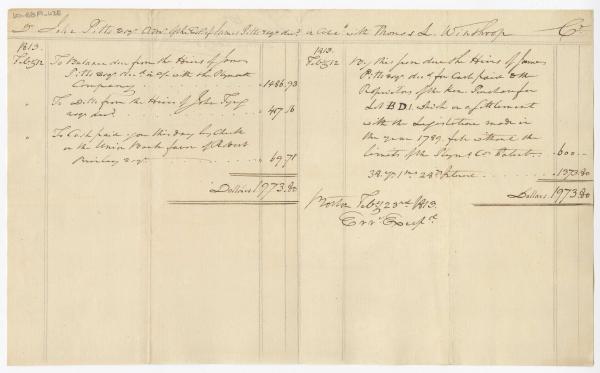 Dr John Pitts esqr Admr of the Estate of James Pitts esqr decd in Acct with Thomas L Winthrop Cr
1813.
Feby 12 To Balance due from the Heirs of James
Pitts esqr decd in a/c with the Plymouth
Company 1486.93
" To Ditto from the Heirs of John Tyng
esqr decd 417.16
" To Cash paid you this day by Check
on the Union Bank favor of
esqr 69.71
Dollars 1973.80
1813.
Feby 12 By this sum due the Heirs of James
Pitts esqr decd for Cash paid to the
Proprietors of the Ken: Purchase for
Lot B D1. which on a settlement
with the Legislature made in
the year 1789, fell without the
limits of the Plym Co Patent 600 —
1373.80
Dollars 1973.80
Boston Feby 23rd 1813.
Errs Excepd